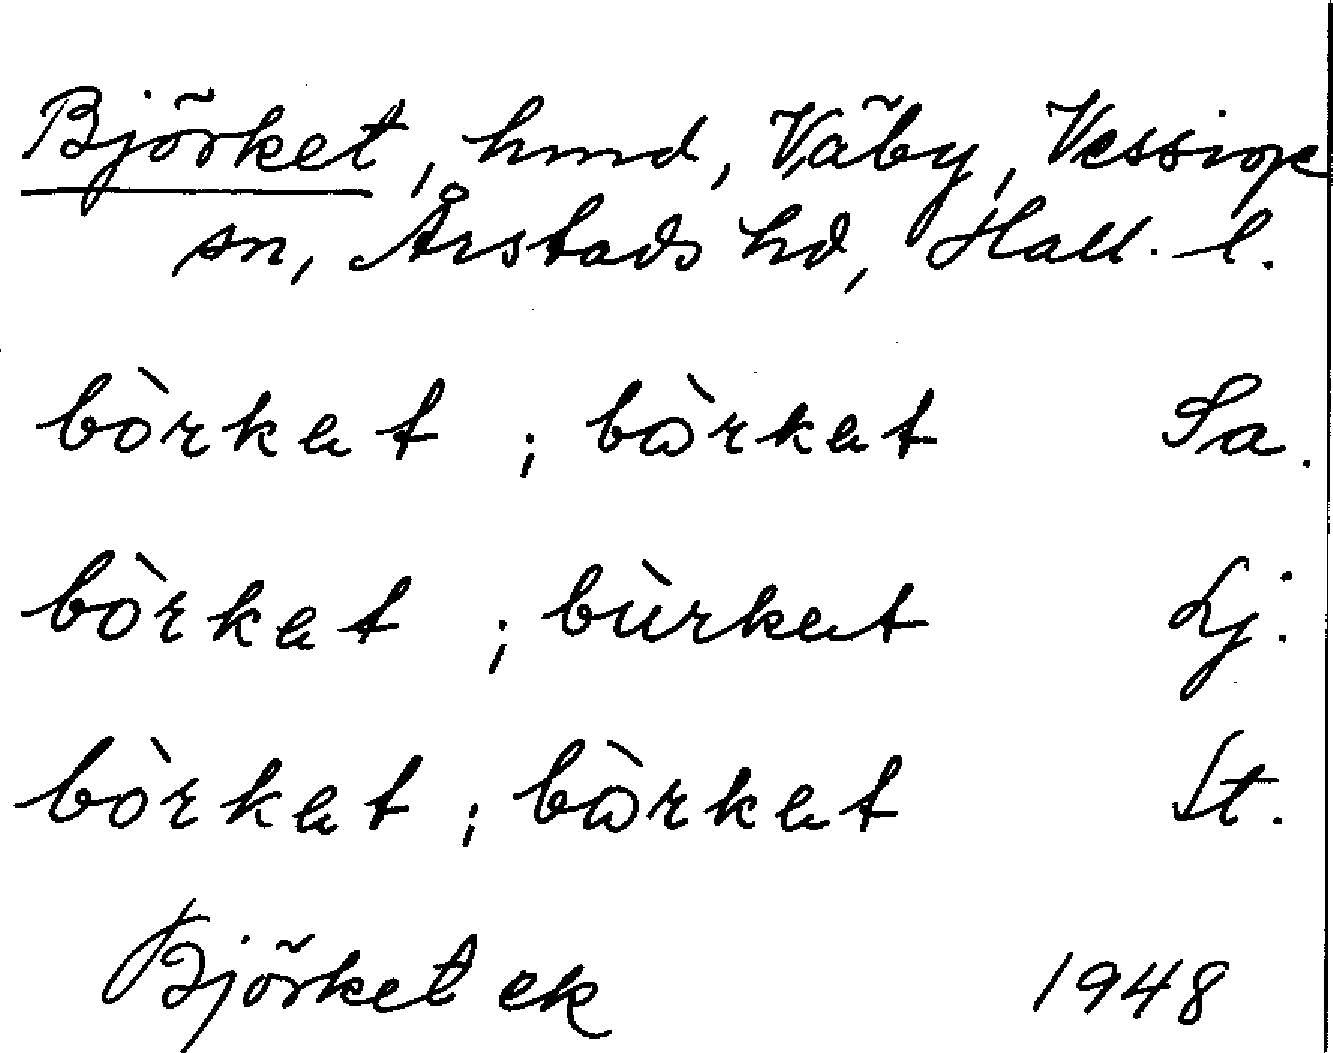 Björket, hmd, Väby, Vessige
sn, Årstads hd, Hall. l.
bòrkat ; bωrkat Sa.
bòrkat ; bùrkat Lj.
bòrkat ; bωrkat St.
Björket ek 1948